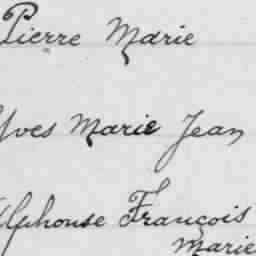 Pierre Marie
Yves Marie Jean
Alphonse François
Marie